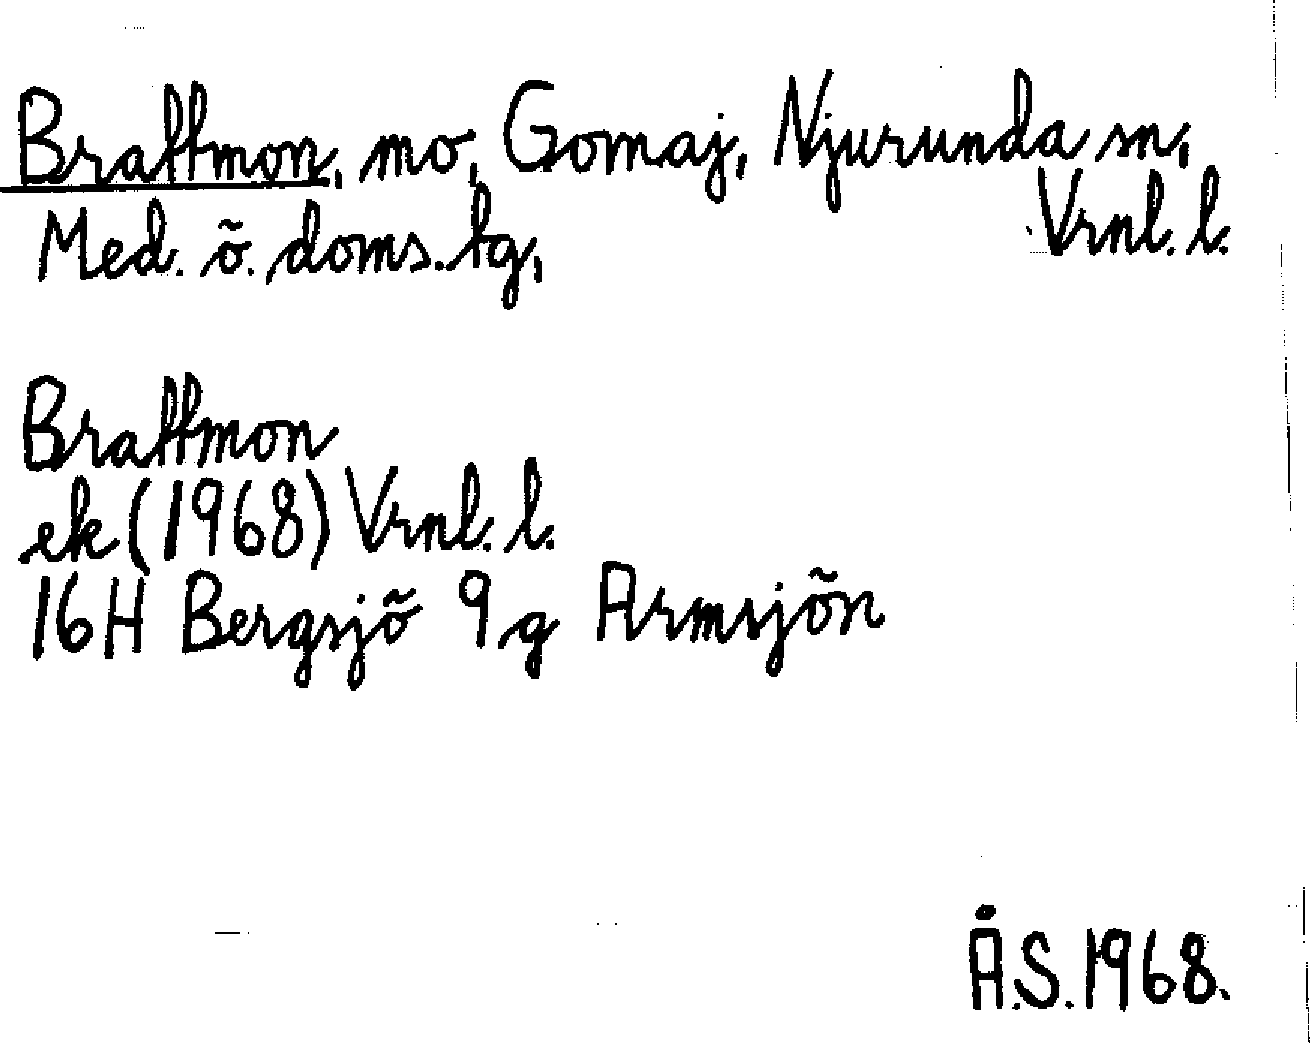 Brattmon, mo, Gomaj, Njurunda sn,
Vrnl. l.
Med. ö. doms. tg,
Brattmon
ek (1968) Vrnl. l.
16H Bergsjö 9g Armsjön
Å.S. 1968.